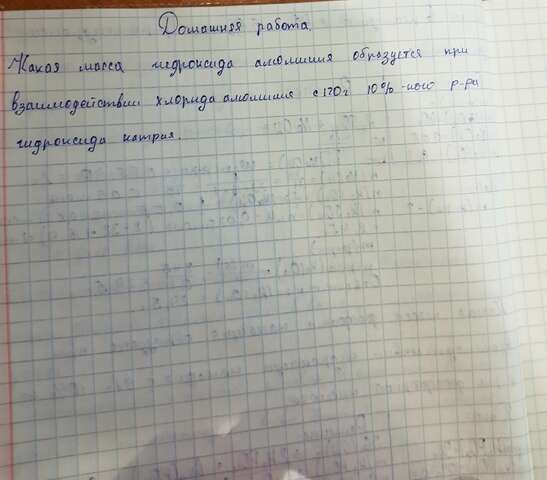 Домашняя работа.
Какая масса гидроксида алюминия образуется при
взаимодействии хлорида алюминия с 120 г 10%-ного р-ра
гидроксида натрия.